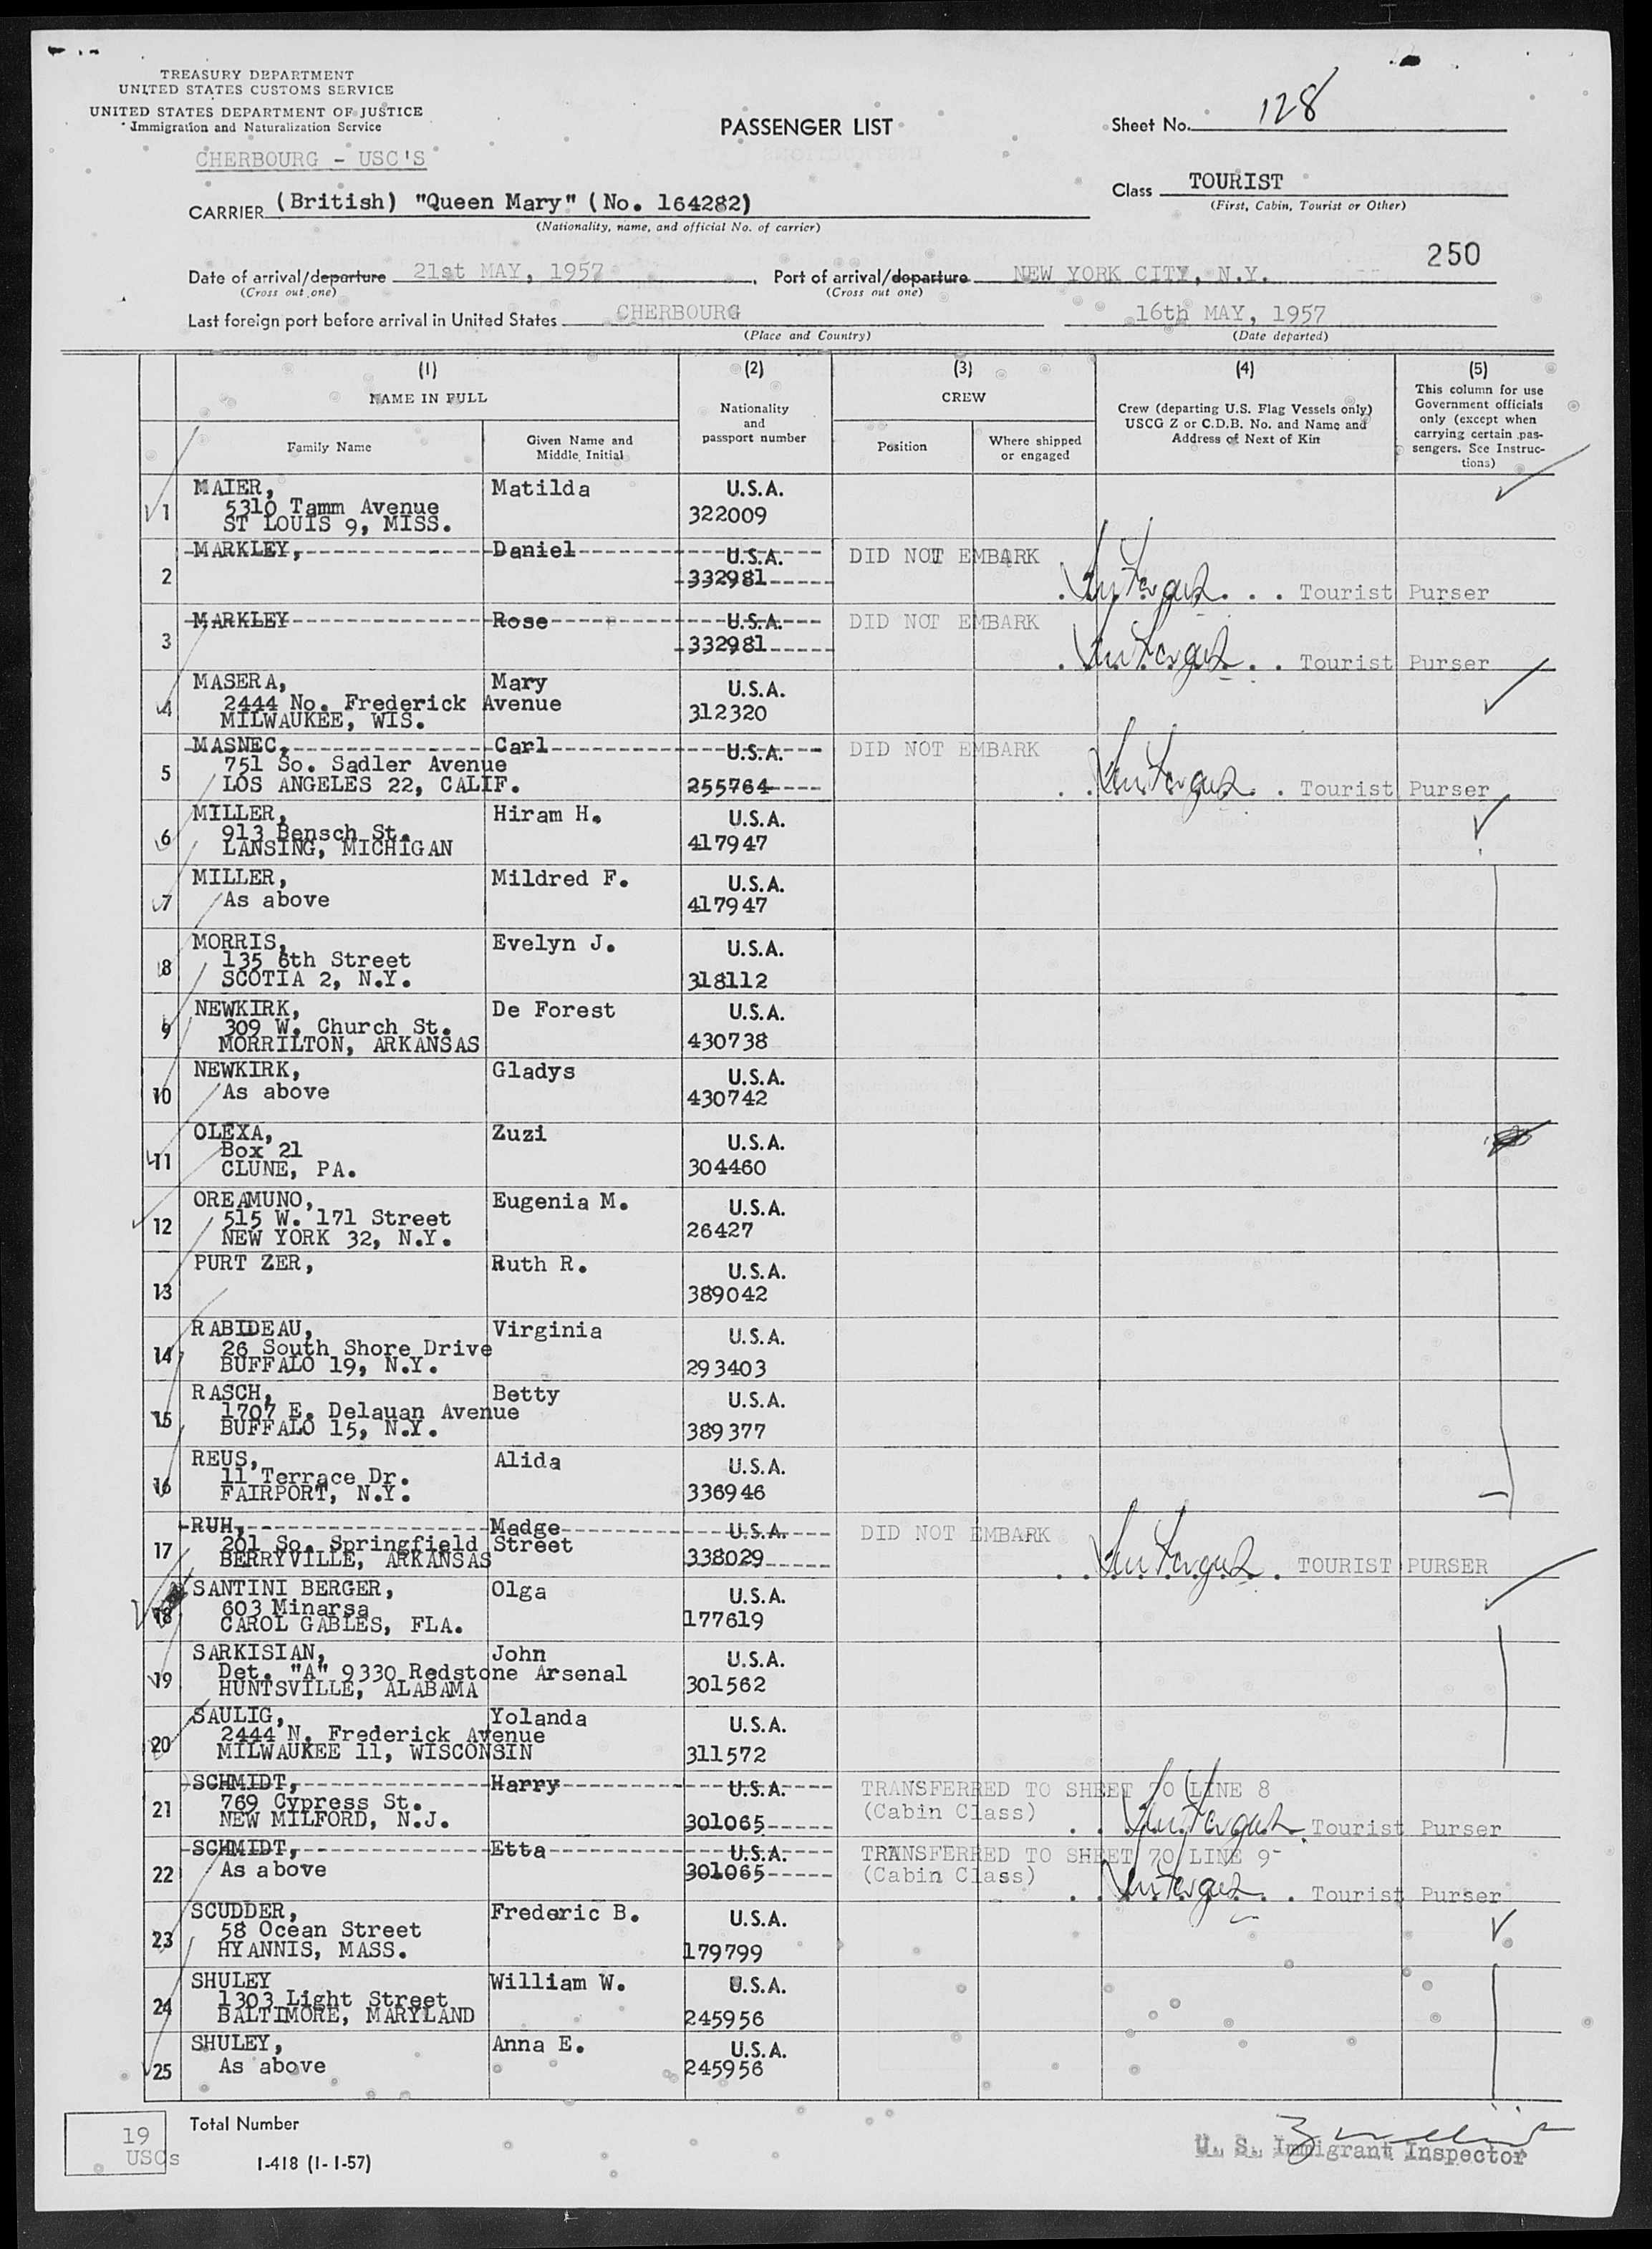 TREASURY DEPARTMENT
UNITED STATES CUSTOMS SERVICE
UNITED STATES DEPARTMENT OF JUSTICE
Immigration and Naturalization Service
CHERBOURG - USC'S
PASSENGER LIST
Sheet No. 128
Class TOURIST
(First, Cabin, Tourist or Other)
CARRIER (British) "Queen Mary" (No. 164282)
(Nationality, name, and official No. of carrier)
250
Date of arrival/departure 21st MAY, 1957, Port of arrival/departure NEW YORK CITY, N.Y.
(Cross out one) (Cross out one)
Last foreign port before arrival in United States CHERBOURG 16th MAY, 1957
(Place and Country) (Date departed)
(1) (2) (3) (4) (5)
NAME IN FULL
Family Name
Given Name and Middle Initial
Nationality and passport number
CREW
Position
Where shipped or engaged
Crew (departing U.S. Flag Vessels only) USCG Z or C.D.B. No. and Name and Address of Next of Kin
This column for use Government officials only (except when carrying certain pas-sengers. See Instruc-tions)
1 MAIER, Matilda U.S.A.
5310 Tamm Avenue 322009
ST LOUIS 9, MISS.
2 MARKLEY, Daniel U.S.A. DID NOT EMBARK
332981 Tourist Purser
3 MARKLEY Rose U.S.A. DID NOT EMBARK
332981 Tourist Purser
4 MASERA, Mary U.S.A.
2444 No. Frederick Avenue 312320
MILWAUKEE, WIS.
5 MASNEC, Carl U.S.A. DID NOT EMBARK
751 So. Sadler Avenue
LOS ANGELES 22, CALIF. 255764 Tourist Purser
6 MILLER, Hiram H. U.S.A.
913 Bensch St. 417947
LANSING, MICHIGAN
7 MILLER, Mildred F. U.S.A.
As above 417947
8 MORRIS, Evelyn J. U.S.A.
135 6th Street
SCOTIA 2, N.Y. 318112
9 NEWKIRK, De Forest U.S.A.
309 W. Church St.
MORRILTON, ARKANSAS 430738
10 NEWKIRK, Gladys U.S.A.
As above 430742
11 OLEXA, Zuzi U.S.A.
Box 21
CLUNE, PA. 304460
12 OREAMUNO, Eugenia M. U.S.A.
515 W. 171 Street 26427
NEW YORK 32, N.Y.
13 PURT ZER, Ruth R. U.S.A.
389042
14 RABIDEAU, Virginia U.S.A.
26 South Shore Drive
BUFFALO 19, N.Y. 293403
15 RASCH, Betty U.S.A.
1707 E. Delauan Avenue
BUFFALO 15, N.Y. 389377
16 REUS, Alida U.S.A.
11 Terrace Dr.
FAIRPORT, N.Y. 336946
17 RUH, Madge U.S.A. DID NOT EMBARK
201 So. Springfield Street
BERRYVILLE, ARKANSAS 338029 TOURIST PURSER
18 SANTINI BERGER, Olga U.S.A.
603 Minarsa
CAROL GABLES, FLA. 177619
19 SARKISIAN, John U.S.A.
Det. "A" 9330 Redstone Arsenal
HUNTSVILLE, ALABAMA 301562
20 SAULIG, Yolanda U.S.A.
2444 N. Frederick Avenue
MILWAUKEE 11, WISCONSIN 311572
21 SCHMIDT, Harry U.S.A. TRANSFERRED TO SHEET 70 LINE 8
769 Cypress St. (Cabin Class)
NEW MILFORD, N.J. 301065 Tourist Purser
22 SCHMIDT, Etta U.S.A. TRANSFERRED TO SHEET 70 LINE 9
As above 301065 (Cabin Class)
Tourist Purser
23 SCUDDER, Frederic B. U.S.A.
58 Ocean Street
HYANNIS, MASS. 179799
24 SHULEY William W. U.S.A.
1303 Light Street
BALTIMORE, MARYLAND 245956
25 SHULEY, Anna E. U.S.A.
As above 245956
19 USCs Total Number
I-418 (1-1-57)
U. S. Immigrant Inspector